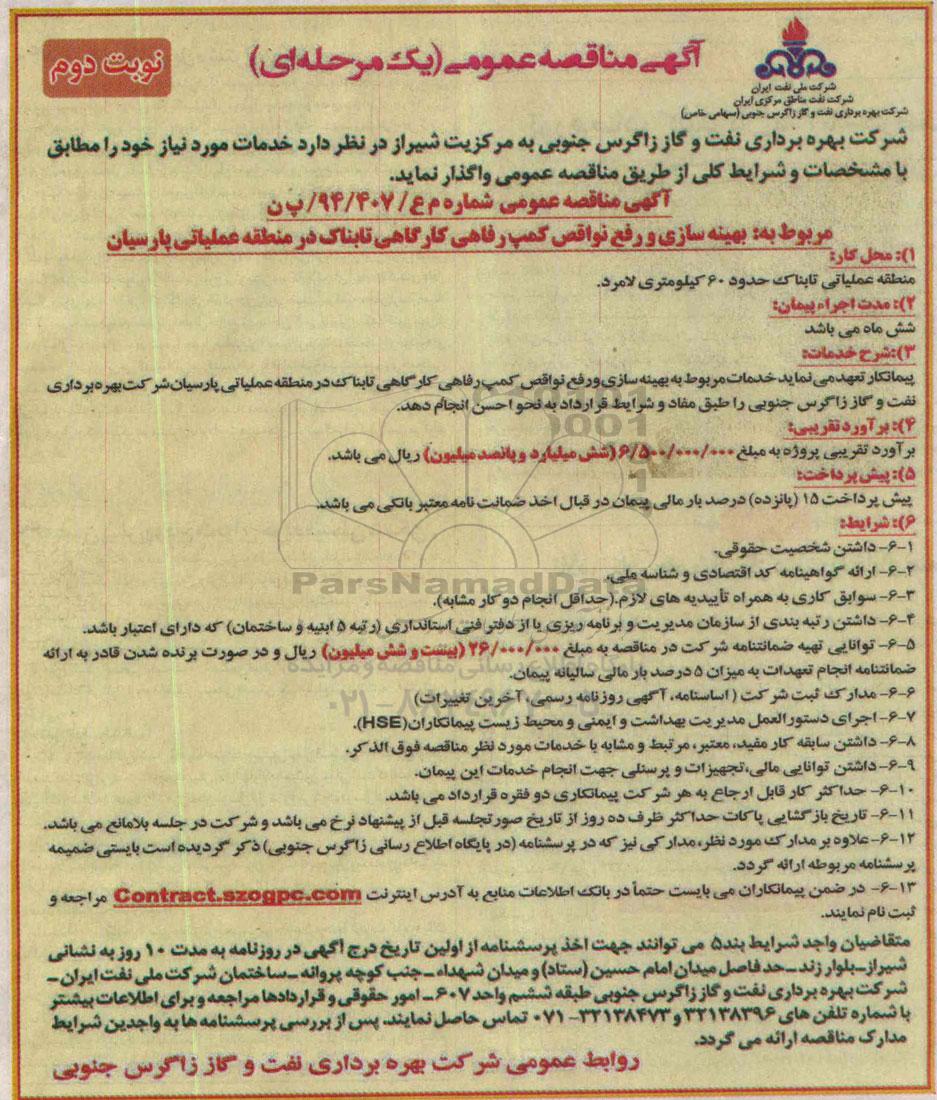 آگهی مناقصه عمومی (یک مرحله‌ای)
نوبت دوم
شرکت ملی نفت ایران
شرکت نفت مناطق مرکزی ایران
شرکت بهره برداری نفت و گاز زاگرس جنوبی (سهامی خاص)
شرکت بهره برداری نفت و گاز زاگرس جنوبی به مرکزیت شیراز در نظر دارد خدمات مورد نیاز خود را مطابق
با مشخصات و شرایط کلی از طریق مناقصه عمومی واگذار نماید.
آگهی مناقصه عمومی شماره م ع/ ۹۴/۴۰۷/ پ ن
مربوط به: بهینه سازی و رفع نواقص کمپ رفاهی کارگاهی تابناک در منطقه عملیاتی پارسیان
۱): محل کار:
منطقه عملیاتی تابناک حدود ۶۰ کیلومتری لامرد.
۲): مدت اجراء پیمان:
شش ماه می باشد
۳):شرح خدمات:
پیمانکار تعهدمی نماید خدمات مربوط به بهینه سازی ورفع نواقص کمپ رفاهی کارگاهی تابناک در منطقه عملیاتی پارسیان شرکت بهره برداری
نفت و گاز زاگرس جنوبی را طبق مفاد و شرایط قرارداد به نحو احسن انجام دهد.
۴): برآورد تقریبی:
برآورد تقریبی پروژه به مبلغ ۶/۵۰۰/۰۰۰/۰۰۰ (شش میلیارد و پانصد میلیون) ریال می باشد.
۵): پیش پرداخت:
پیش پرداخت ۱۵ (پانزده) درصد بار مالی پیمان در قبال اخذ ضمانت نامه معتبر بانکی می باشد.
۶): شرایط:
۶-۱- داشتن شخصیت حقوقی.
۶-۲- ارائه گواهینامه کد اقتصادی و شناسه ملی.
ParsNamadData
۶-۳- سوابق کاری به همراه تأییدیه های لازم.(حداقل انجام دو کار مشابه).
۶-۴- داشتن رتبه بندی از سازمان مدیریت و برنامه ریزی یا از دفتر فنی استانداری (رتبه ۵ ابنیه و ساختمان) که دارای اعتبار باشد.
۶-۵- توانایی تهیه ضمانتنامه شرکت در مناقصه به مبلغ ۲۶/۰۰۰/۰۰۰ (بیست و شش میلیون) ریال و در صورت برنده شدن قادر به ارائه
ضمانتنامه انجام تعهدات به میزان ۵درصد بار مالی سالیانه پیمان.
۶-۶- مدارک ثبت شرکت ( اساسنامه، آگهی روزنامه رسمی، آخرین تغییرات)
۶-۷- اجرای دستورالعمل مدیریت بهداشت و ایمنی و محیط زیست پیمانکاران(HSE).
۶-۸- داشتن سابقه کار مفید، معتبر، مرتبط و مشابه با خدمات مورد نظر مناقصه فوق الذکر.
۶-۹- داشتن توانایی مالی،تجهیزات و پرسنلی جهت انجام خدمات این پیمان.
۶-۱۰- حداکثر کار قابل ارجاع به هر شرکت پیمانکاری دو فقره قرارداد می باشد.
۶-۱۱- تاریخ بازگشایی پاکات حداکثر ظرف ده روز از تاریخ صورتجلسه قبل از پیشنهاد نرخ می باشد و شرکت در جلسه بلامانع می باشد.
۶-۱۲- علاوه بر مدارک مورد نظر، مدارکی نیز که در پرسشنامه (در پایگاه اطلاع رسانی زاگرس جنوبی) ذکر گردیده است بایستی ضمیمه
پرسشنامه مربوطه ارائه گردد.
۶-۱۳- در ضمن پیمانکاران می بایست حتماً در بانک اطلاعات منابع به آدرس اینترنت Contract.szogpc.com مراجعه و
ثبت نام نمایند.
متقاضیان واجد شرایط بند۵ می توانند جهت اخذ پرسشنامه از اولین تاریخ درج آگهی در روزنامه به مدت ۱۰ روز به نشانی
شیراز-بلوار زند -حد فاصل میدان امام حسین (ستاد) و میدان شهداء - جنب کوچه پروانه -ساختمان شرکت ملی نفت ایران -
شرکت بهره برداری نفت و گاز زاگرس جنوبی طبقه ششم واحد ۶۰۷ - امور حقوقی و قراردادها مراجعه و برای اطلاعات بیشتر
با شماره تلفن های ۳۲۱۳۸۳۹۶ و ۳۲۱۳۸۴۷۳-۰۷۱ تماس حاصل نمایند. پس از بررسی پرسشنامه ها به واجدین شرایط
مدارک مناقصه ارائه می گردد.
روابط عمومی شرکت بهره برداری نفت و گاز زاگرس جنوبی